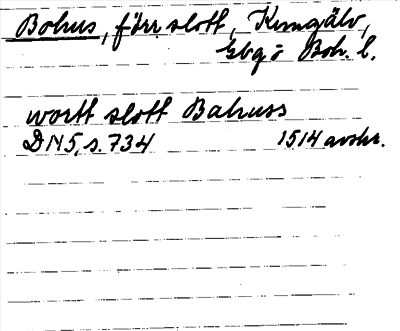 Bohus, förr slott, Kungälv,
Gbg o Boh. l.
wortt slott Bahuss
DN 5, s. 734 1514 avskr.